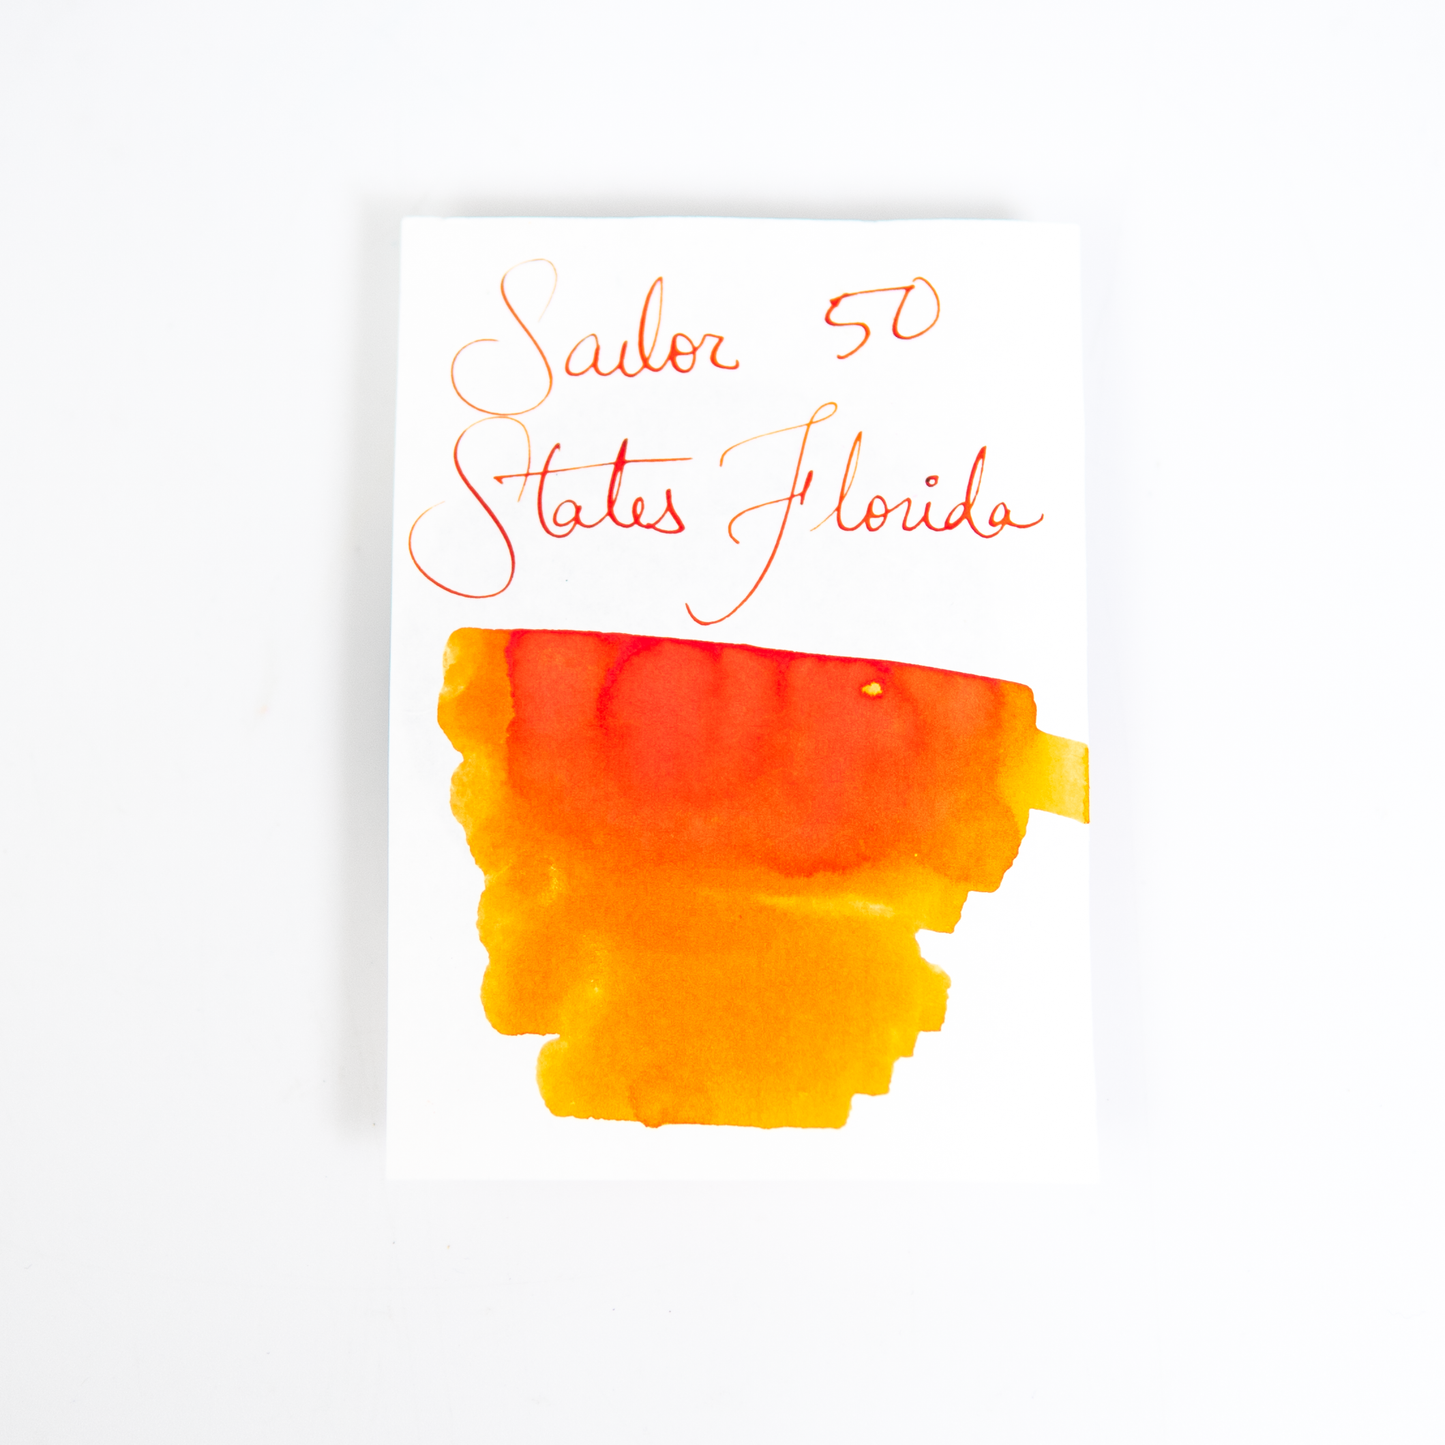 Sailor 50
States Florida